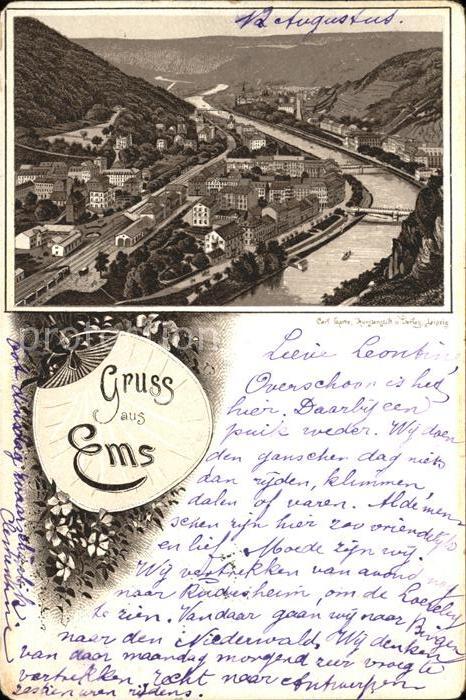 12 Augustus.
Carl Garte, Kunstanstalt u. Verlag, Leipzig
Gruss
aus
Ems
Lieve Leontine
Overschoon is het
hier. Daarbij een
puik weder. Wij doen
den ganschen dag niets
dan rijden, klimmen
dalen of varen. Al de men
schen zijn hier zoo vriendelijk
en lief. Moede zijn wij.
Wij vertrekken van avond nog
naar Rüdisheim, om de Loreley
te zien. Vandaar gaan wij naar Bingen
naar den Niederwald. Wij denken
van daar maandag morgend zeer vroeg te
vertrekken, recht naar Antwerpen
zestien uren rijdens.